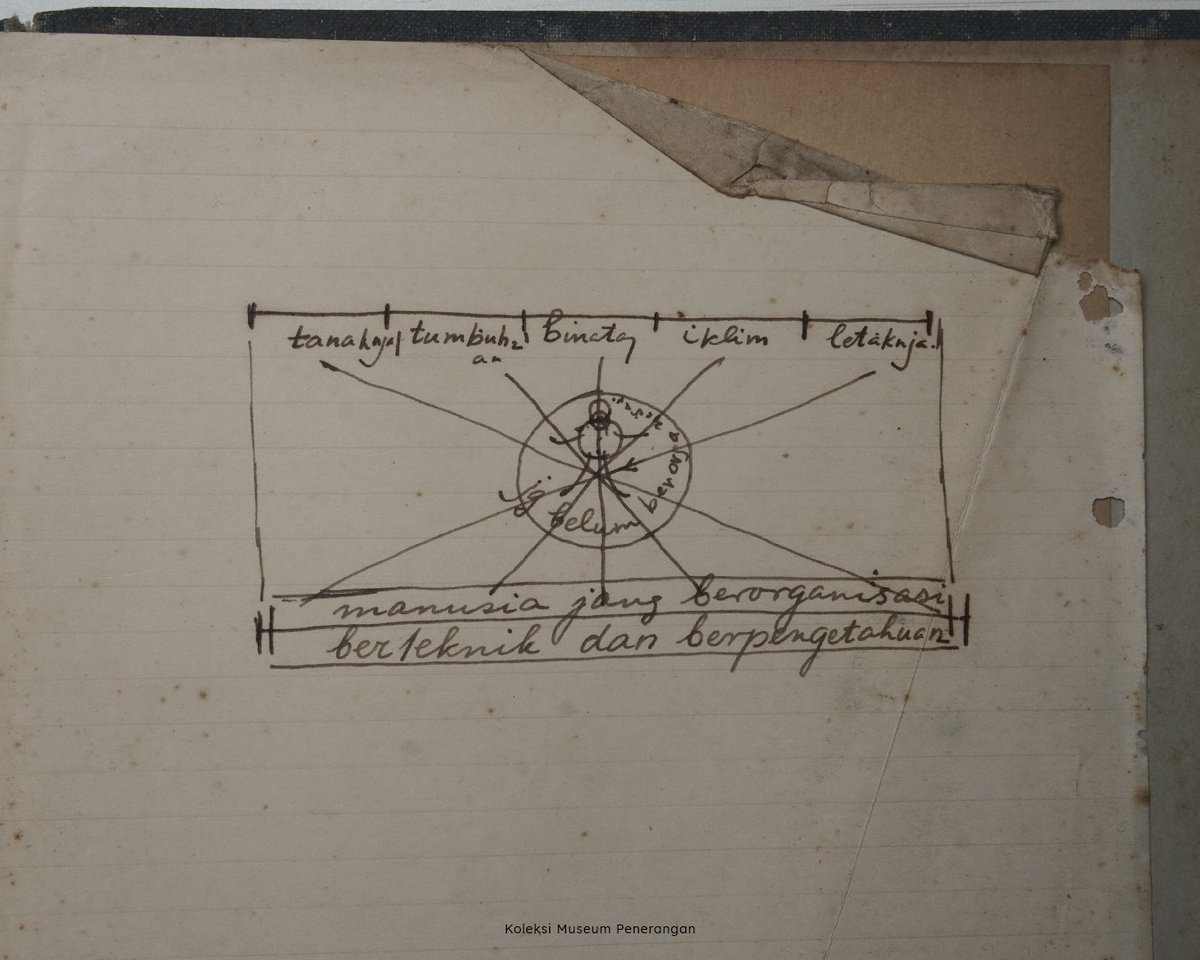 tanahnja tumbuh2 binatg iklim letaknja.
an
jg belum
manusia jang berorganisasi
berteknik dan berpengetahuan
Koleksi Museum Penerangan